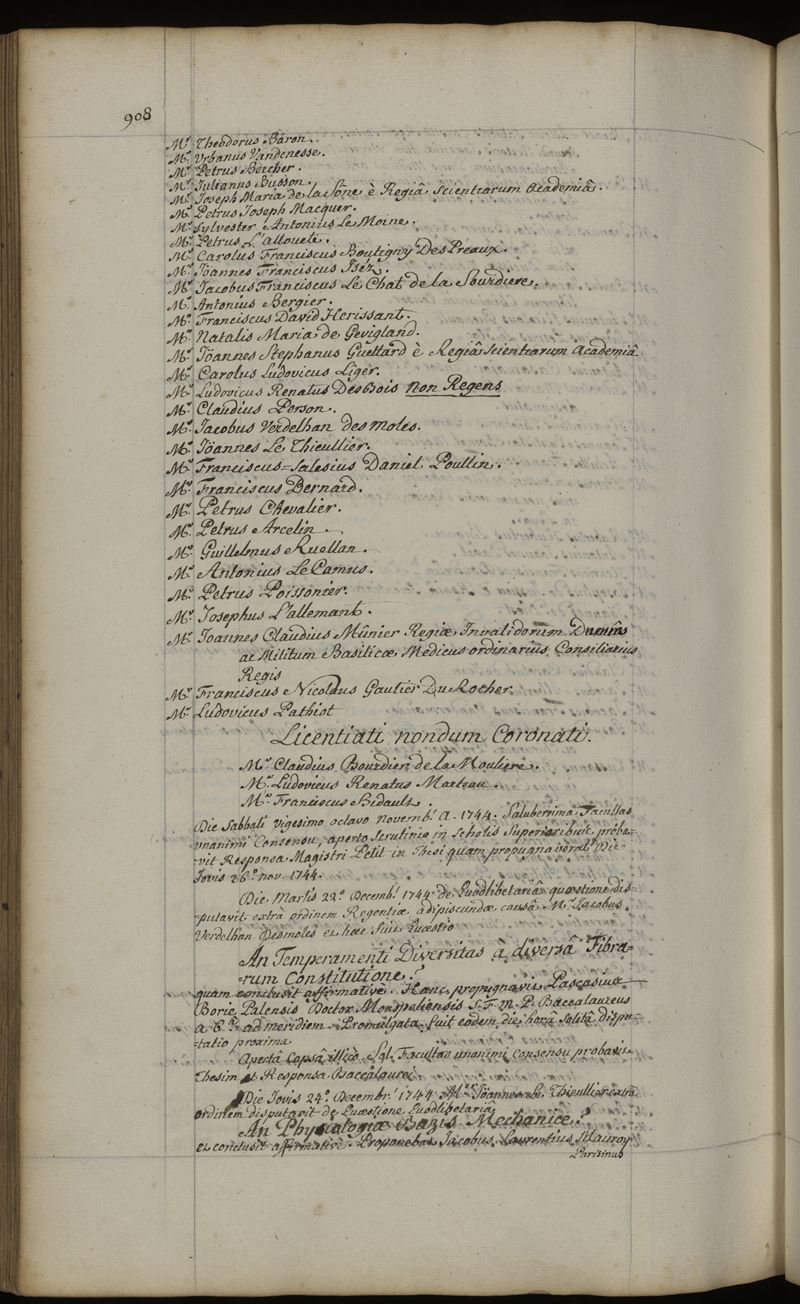 908
Mr. Theodorus Baron.
Mr. Urbanus Vandenesse.
Mr. Petrus Bercher.
Mr. Julianus Busson.
Mr. Joseph Maria de la Sône è Regiâ Scientiarum Academiâ.
Mr. Petrus Joseph Macquer.
Mr. Sylvester Antonius Le Moine.
Mr. Petrus L'allouete.
Mr. Carolus Franciscus Boutigny Des Preaux.
Mr. Joannes Franciscus Iséz.
Mr. Jacobus Franciscus Le Chat de la Sourdiere.
Mr. Antonius Bergier.
Mr. Franciscus David Herissant.
Mr. Natalis Maria de Gevigland.
Mr. Joannes Stephanus Guettard è Regiâ Scientiarum Academiâ
Mr. Carolus Ludovicus Liger.
Mr. Ludovicus Renatus DesBois Non Regens
Mr. Claudius Person.
Mr. Jacobus Verdelhan des moles.
Mr. Jöannes Le Thieullier.
Mr. Franciscus=Salesius Daniel Poullin.
Mr. Franciscus Bernard.
Mr. Petrus Chevalier.
Mr. Petrus Arcelin.
Mr. Guillelmus Ruellan.
Mr. Antonius Le Camus.
Mr. Petrus Poissonier.
Mr. Josephus L'allemant.
Mr. Joannes Claudius Mûnier Regiæ Invalidorum
ac Militum Basilicæ Medicus ordinarius Consiliarius
Regis
Mr. Franciscus Nicolaus Gautier Du Rocher
Mr. Ludovicus Pathiot
Licentiati nondum Coronati.
Mr. Claudius Bourdier de la Mouliere.
Mr. Ludovicus Renatus Marteau.
Mr. Franciscus Bidault.
Die Sabbati vigesimo octavo novemb. A. 1744. Saluberrima Facultas
unanimi Consensu, aperto Scrutinio in Scholis Superioribus, proba-
vit Responsa Magistri Petit in Thesi quam propugnaverat Die
Jovis 26º nov. 1744.
Die Martis 22º Decemb. 1744 de Quodlibetariâ quæstione dis-
-putavit extrà ordinem Regentiæ adipiscundæ causâ Mr. Jacobus
Verdelhan Desmoles et hæc fuit Quæstio
An Temperamenti Diversitas à diversâ Fibra-
-rum Constitutione?
quam conclusit affirmativè. Hanc propugnavit Pascasius
Borie Palensis Doctor Monspeliensis S. F. M. P. Baccalaureus
a 6ª ad meridiem. Promulgata fuit eodem die, horâ solitâ dispu-
-tatio proxima
Apertâ Capsâ illicò Sal. Facultas unanimi consensu probavit
Thesim et Responsa Baccalaurei
Die Jovis 24º. Decembr. 1744 Mr. Jöannes Le Thieullier extra
ordinem disputavit de Quæstione Quodlibetaria
An Physiologiæ Basis Mechanice?
et conclusit affirmativè. Proponebat Jacobus Laurentius Mauroy
Parisinus